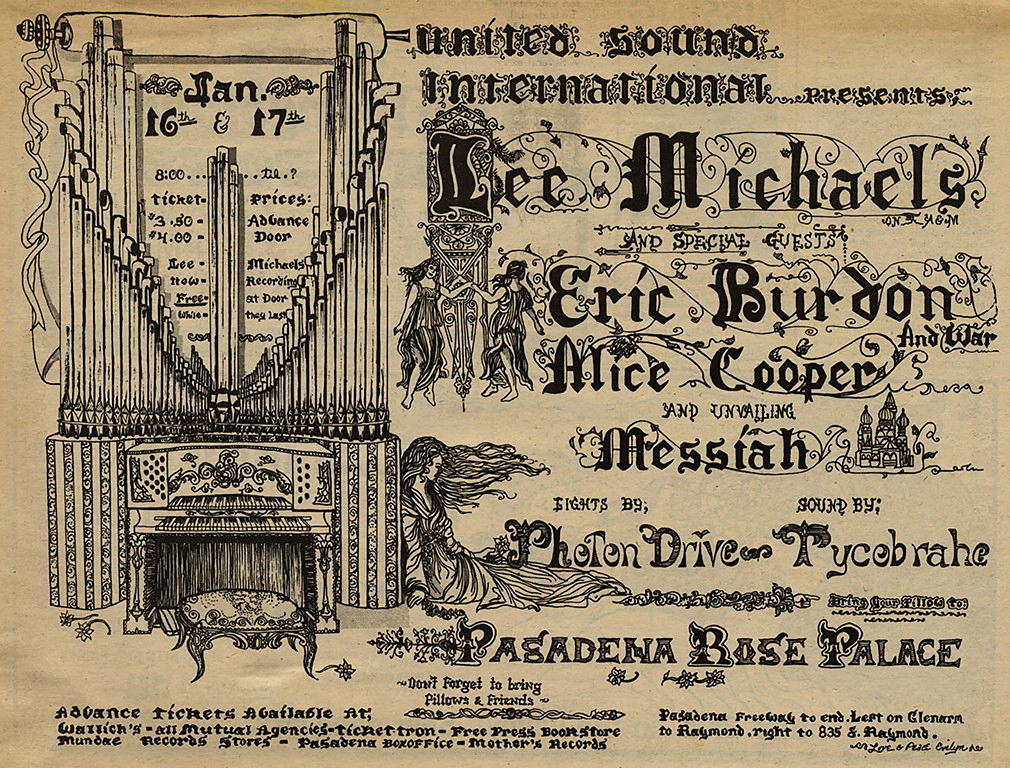 Jan.
16th & 17th
8:00.... til.?
ticket- Prices:
$3.50 - Advance
$4.00 - Door
Lee - Michaels
New - Recording
Free - at Door
While - they Last
United Sound
International...presents;
Lee Michaels
ON A&M
AND SPECIAL GUESTS
Eric Burdon
And War
Alice Cooper
AND UNVAILING
Messiah
LIGHTS BY; SOUND BY;
Photon Drive Tycobrahe
Bring Your Pillow to:
PASADENA ROSE PALACE
~Don't Forget to bring
Pillows & Friends~
Advance Tickets Available At;
Wallich's - all Mutual Agencies - Ticketron - Free Press Bookstore
Mundae Records Stores - Pasadena Boxoffice - Mother's Records
Pasadena Freeway to end. Left on Glenarm
to Raymond, right to 835 S. Raymond.
Love & Peace Evilyn